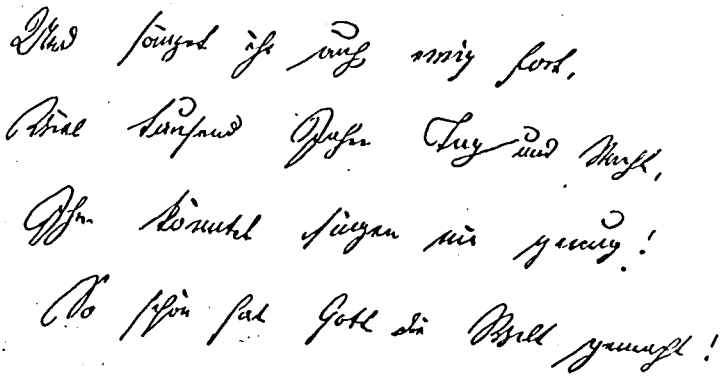 Und sänget ihr auch ewig fort,
Viel tausend Jahre Tag und Nacht,
Ihr könntet singen nie genug!
So schön hat Gott die Welt gemacht!